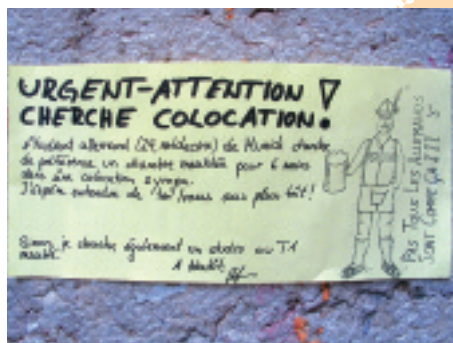 URGENT-ATTENTION !
CHERCHE COLOCATION.
étudiant allemand (24, ) de Munich cherche
de préférence un chambre meublée pour 6 mois
dans une colocation sympa.
J'espère entendre de plus tôt!
Sinon, je cherche également un studio ou T1
meublé.
A bientôt
PAS TOUS LES ALLEMANDS
SONT COMME ÇA!!!